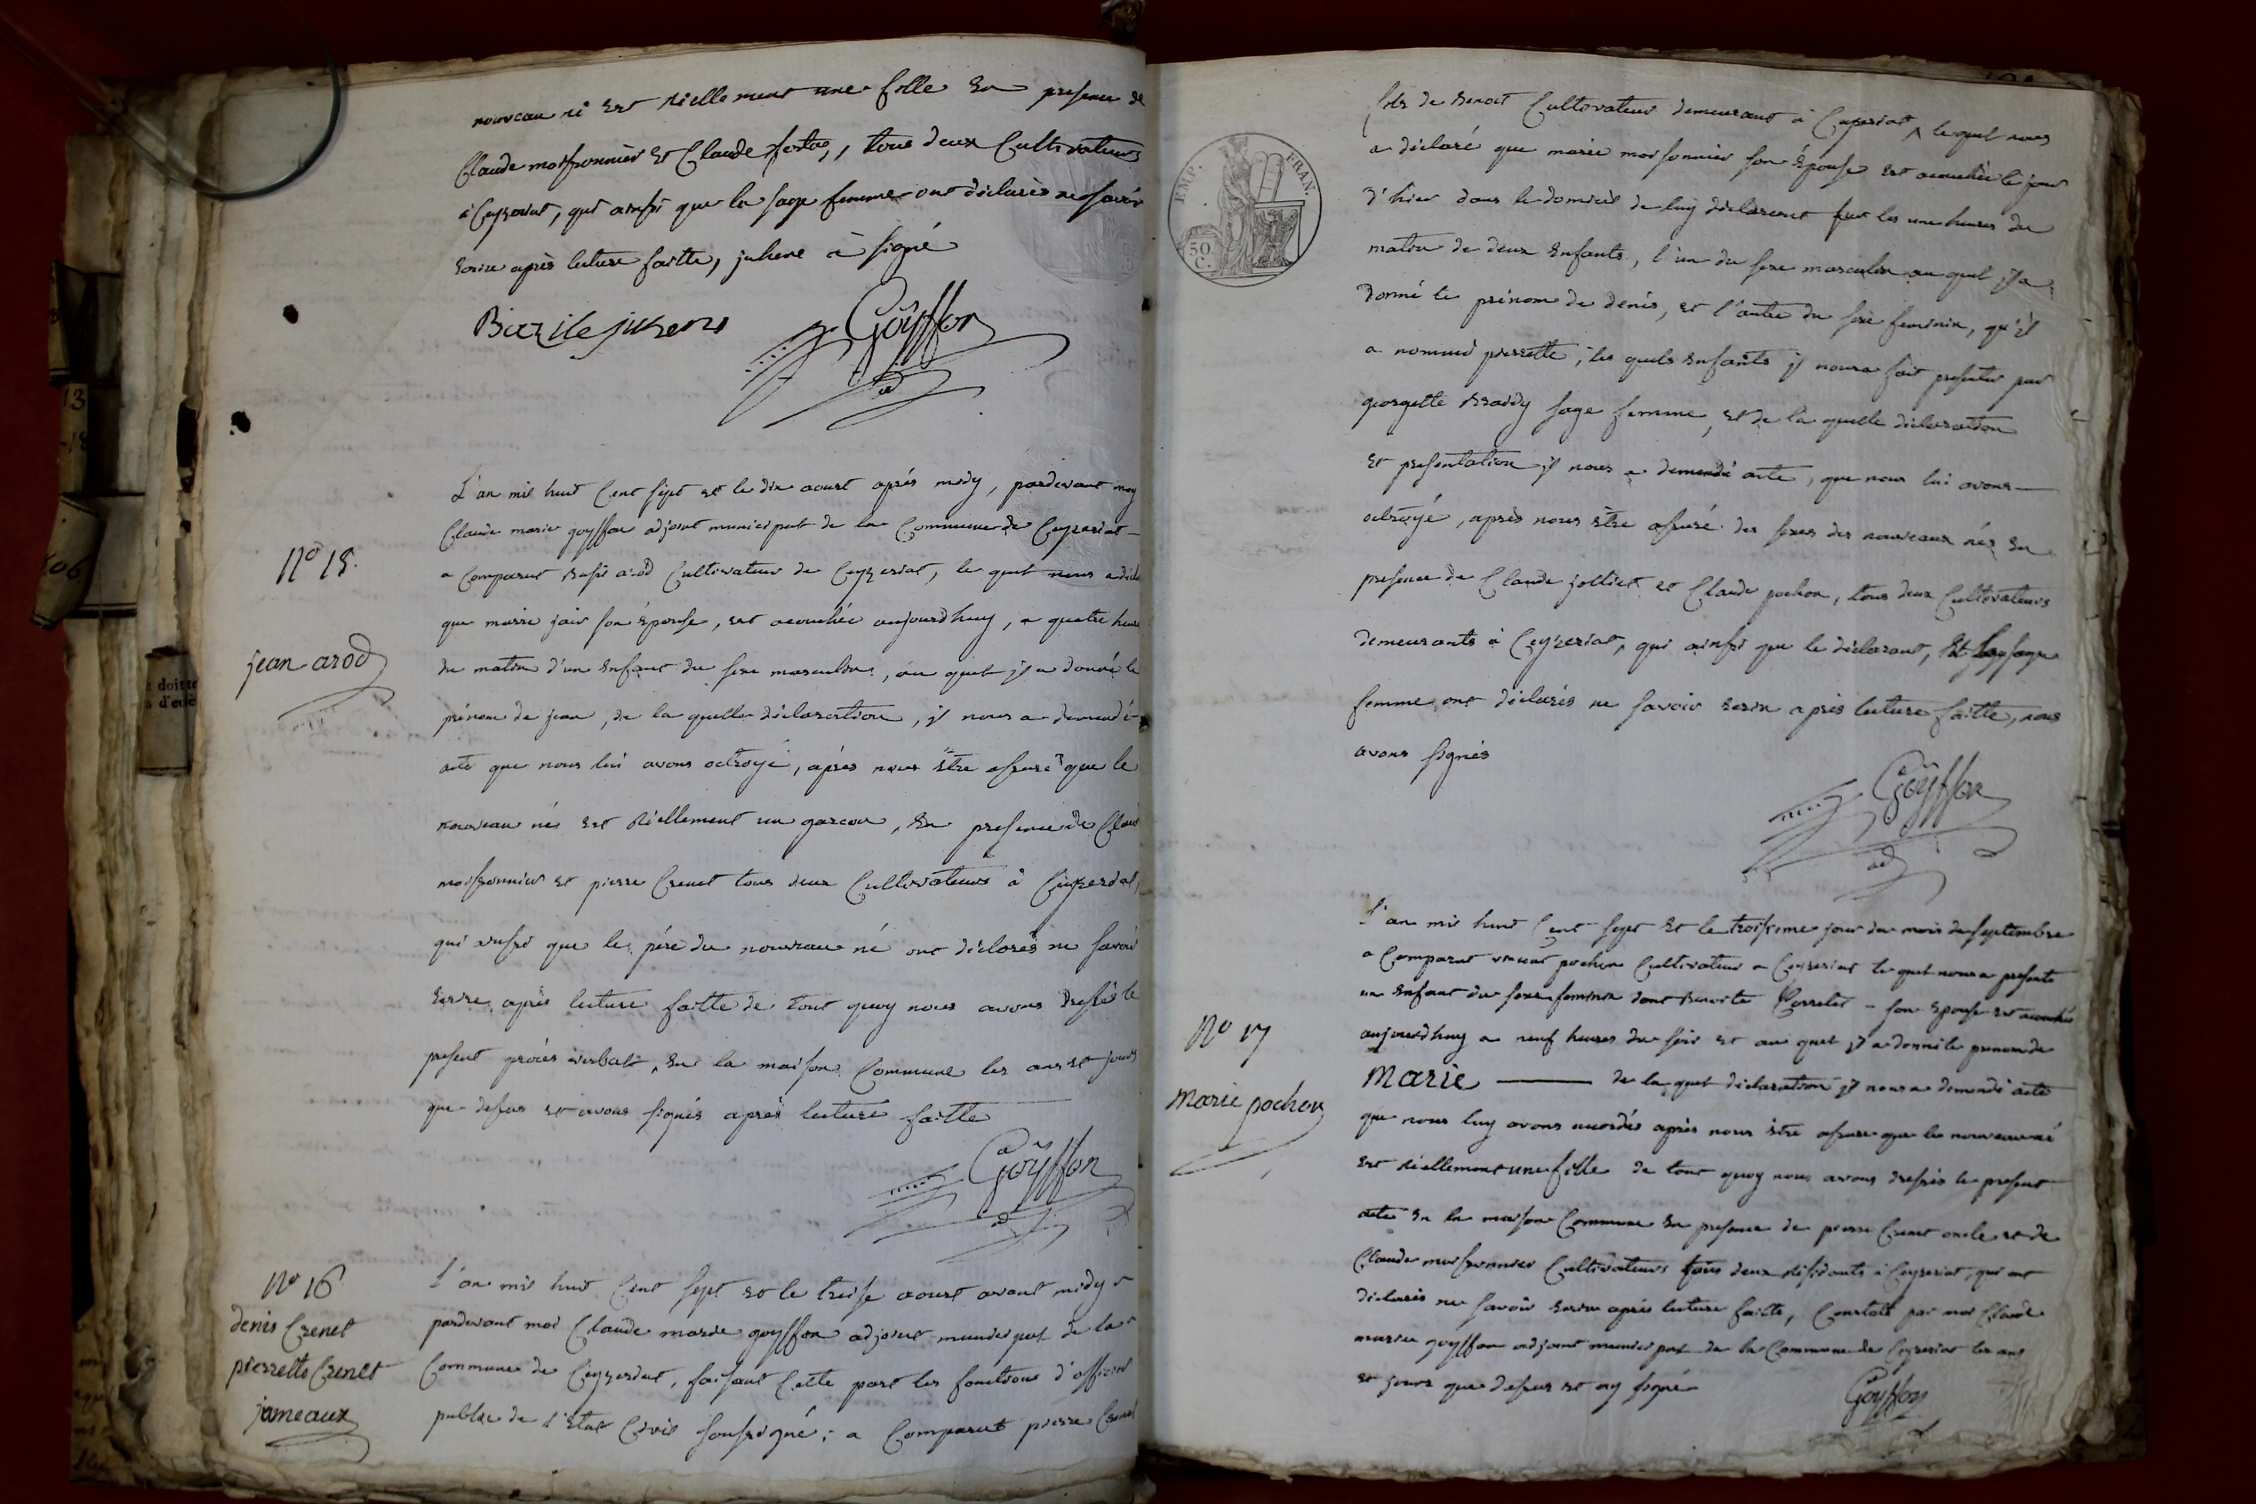 nouveau né est réellement une fille En presence de
Claude moissonnier et Claude , tous deux Cultivateurs
à Ceyzeriat, qui ainsi que la sage femme ont déclarés ne savoir
Ecrire après lecture faitte, juhene à signé
Bazile juhene
Goÿffon
ad
N° 15.
jean arod
L'an mil huit Cent sept et le dix aoust après midy, pardevant moy
Claude marie goyffon adjoint municipal de la Commune de Ceyzeriat
a Comparut arod Cultivateur de Ceyzeriat, le quel nous a décla
que marie jair son Epouse, est acouchée aujourdhuy, a quatre heure
du matin d'un Enfant du sexe masculin, au quel il a donné le
prénom de jean, de la quelle déclaration, il nous a demandé
acte que nous lui avons octroyé, après nous être assuré que le
nouveau né est réellement un garcon, En presence de Claud
moissonnier et pierre Crenet tous deux Cultivateurs à Ceyzeriat,
qui ainsi que le père du nouveau né ont déclarés ne savoir
Ecrire, après lecture faitte de tout quoy nous avons dressés le
present procés verbale, En la maison Commune les an et jours
que dessus et avons signés après lecture faitte
Goÿffon
ad
N° 16
denis Crenet
pierrette Crenet
jumeaux
L'an mil huit Cent sept et le treise aoust avant midy
pardevant moi Claude marie goyffon adjoint municipal de la
Commune de Ceyzeriat, faisant Cette part les fonctions d'officier
public de l'Etat Civil soussigné; a Comparut pierre Crenet
EMP. FRAN.
50 C.
fils de Benoit Cultivateur demeurant à Ceyzeriat, le quel nous
a déclaré que marie moissonnier son Epouse est acouchée le jour
d'hier dans le domicile de luy déclarant sur les une heures du
matin de deux Enfants, l'un du sexe masculin au quel il a
donné le prénom de denis, et l'autre du sexe feminin, qu'il
a nommé pierrette; les quels Enfants il nous a fait presenter par
georgette sage femme, et de la quelle déclaration
et presentation il nous a demandé acte, que nous lui avons
octroyé, après nous être assuré des sexes des nouveaux nés En
presence de Claude jolliet et Claude pochon, tous deux Cultivateurs
demeurants à Ceyzeriat, qui ainsi que le déclarant, Et La sage
femme ont déclarés ne savoir Ecrire après lecture faitte, nous
avons signés
Goÿffon
ad
N° 17
Marie pochon
L'an mil huit Cent sept et le troisieme jour du mois de septembre
a Comparut vincent pochon Cultivateur a Ceyzeriat le quel nous a presenté
un Enfant du sexe feminin dont Benoite - son Epouse est acouchée
aujourdhuy a neuf heures du soir et au quel il a donné le prenom de
Marie de la quel déclaration il nous a demandé acte
que nous luy avons acordés après nous être assuré que le nouveau né
est réellement une fille de tout quoy nous avons dressés le present
acte En la maison Commune En presence de pierre Crenet oncle et de
Claude moissonnier Cultivateurs tous deux résidants à Ceyzeriat, qui ont
déclarés ne savoir Ecrire après lecture faitte, Constaté par moi Claude
marie goyffon adjoint municipal de la Commune de Ceyzeriat les ans
et jours que dessus et ay signé
Goÿffon